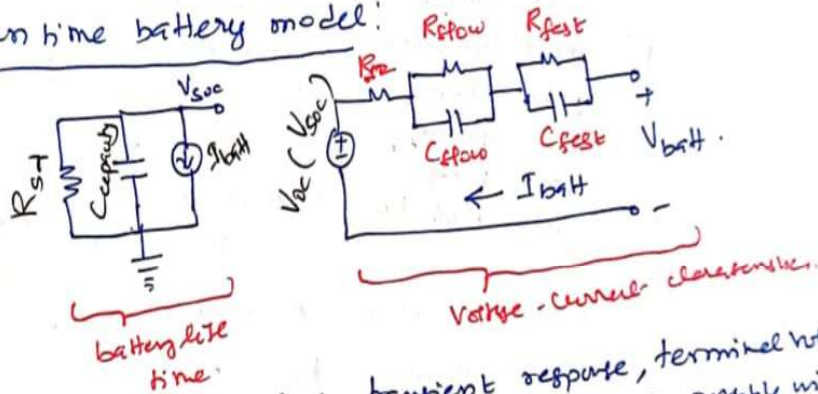 n time battery model:
Rslow Rfast
Vsoc
RST
Ccapacity
Ibatt
Voc (Vsoc)
+
Cslow Cfast Vbatt.
← Ibatt
-
battery life
time.
Voltage-current characteristics.
transient response, terminal